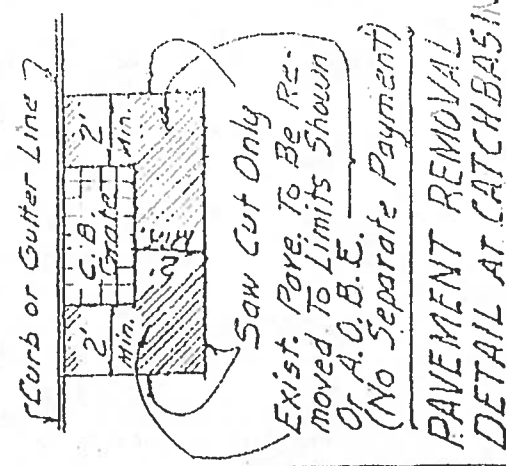 Curb or Gutter Line
2'
Min.
C.B.
Grate
2'
Min.
2'
Min.
Saw Cut Only
Exist. Pave. To Be Re-
moved To Limits Shown
Or A.O.B.E.
(No Separate Payment)
PAVEMENT REMOVAL
DETAIL AT CATCHBASIN